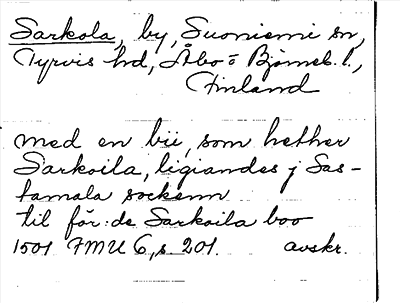 Sarkola, by, Suoniemi sn,
Tyrvis hd, Åbo o Björneb. l.,
Finland
med en bii, som hether
Sarkoila, ligiandes j Sas-
tamala sockenn
til för:de Sarkoila boo
1501 FMU 6, s 201. avskr.